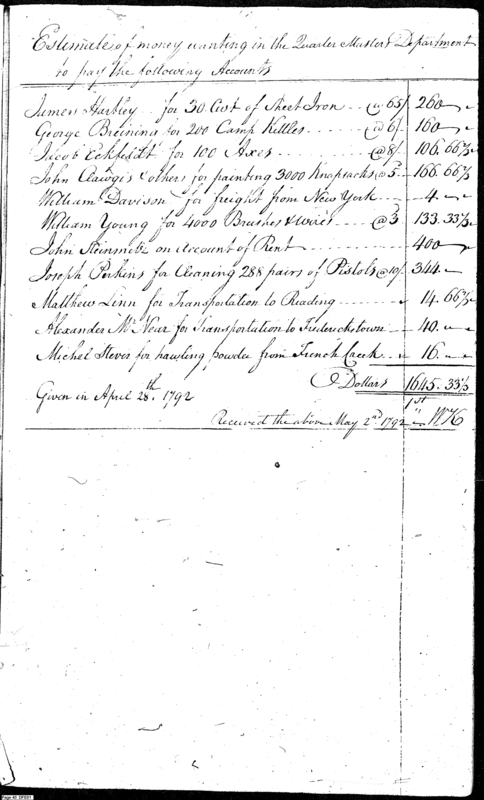 Estimate of money wanting in the Quarter Masters Department
to pay the following Accounts
James Hartley for 30 Cwt of Sheet Iron @ 65/ 260
George Breining for 200 Camp Kettles @ 6/ 160
Jacob Eckfeldt for 100 Axes @ 8/ 106.66 2/3
John & others for painting 3000 Knapsacks @ 5 166.66 2/3
William Davison for freight from New York 4
William Young for 4000 Brushes & wires @ 3 133.33 1/3
John Steinmetz on Account of Rent 400
Joseph Perkins for Cleaning 288 pairs of Pistols @ 10/ 344
Matthew Linn for Transportation to Reading 14.66 2/3
Alexander for Transportation to Fredericktown 40
Michel Stever for hawling powder from French Creek 16
Dollars 1645.33 1/3
Given in April 28th 1792
1st
Received the above May 2nd 1792 " WK